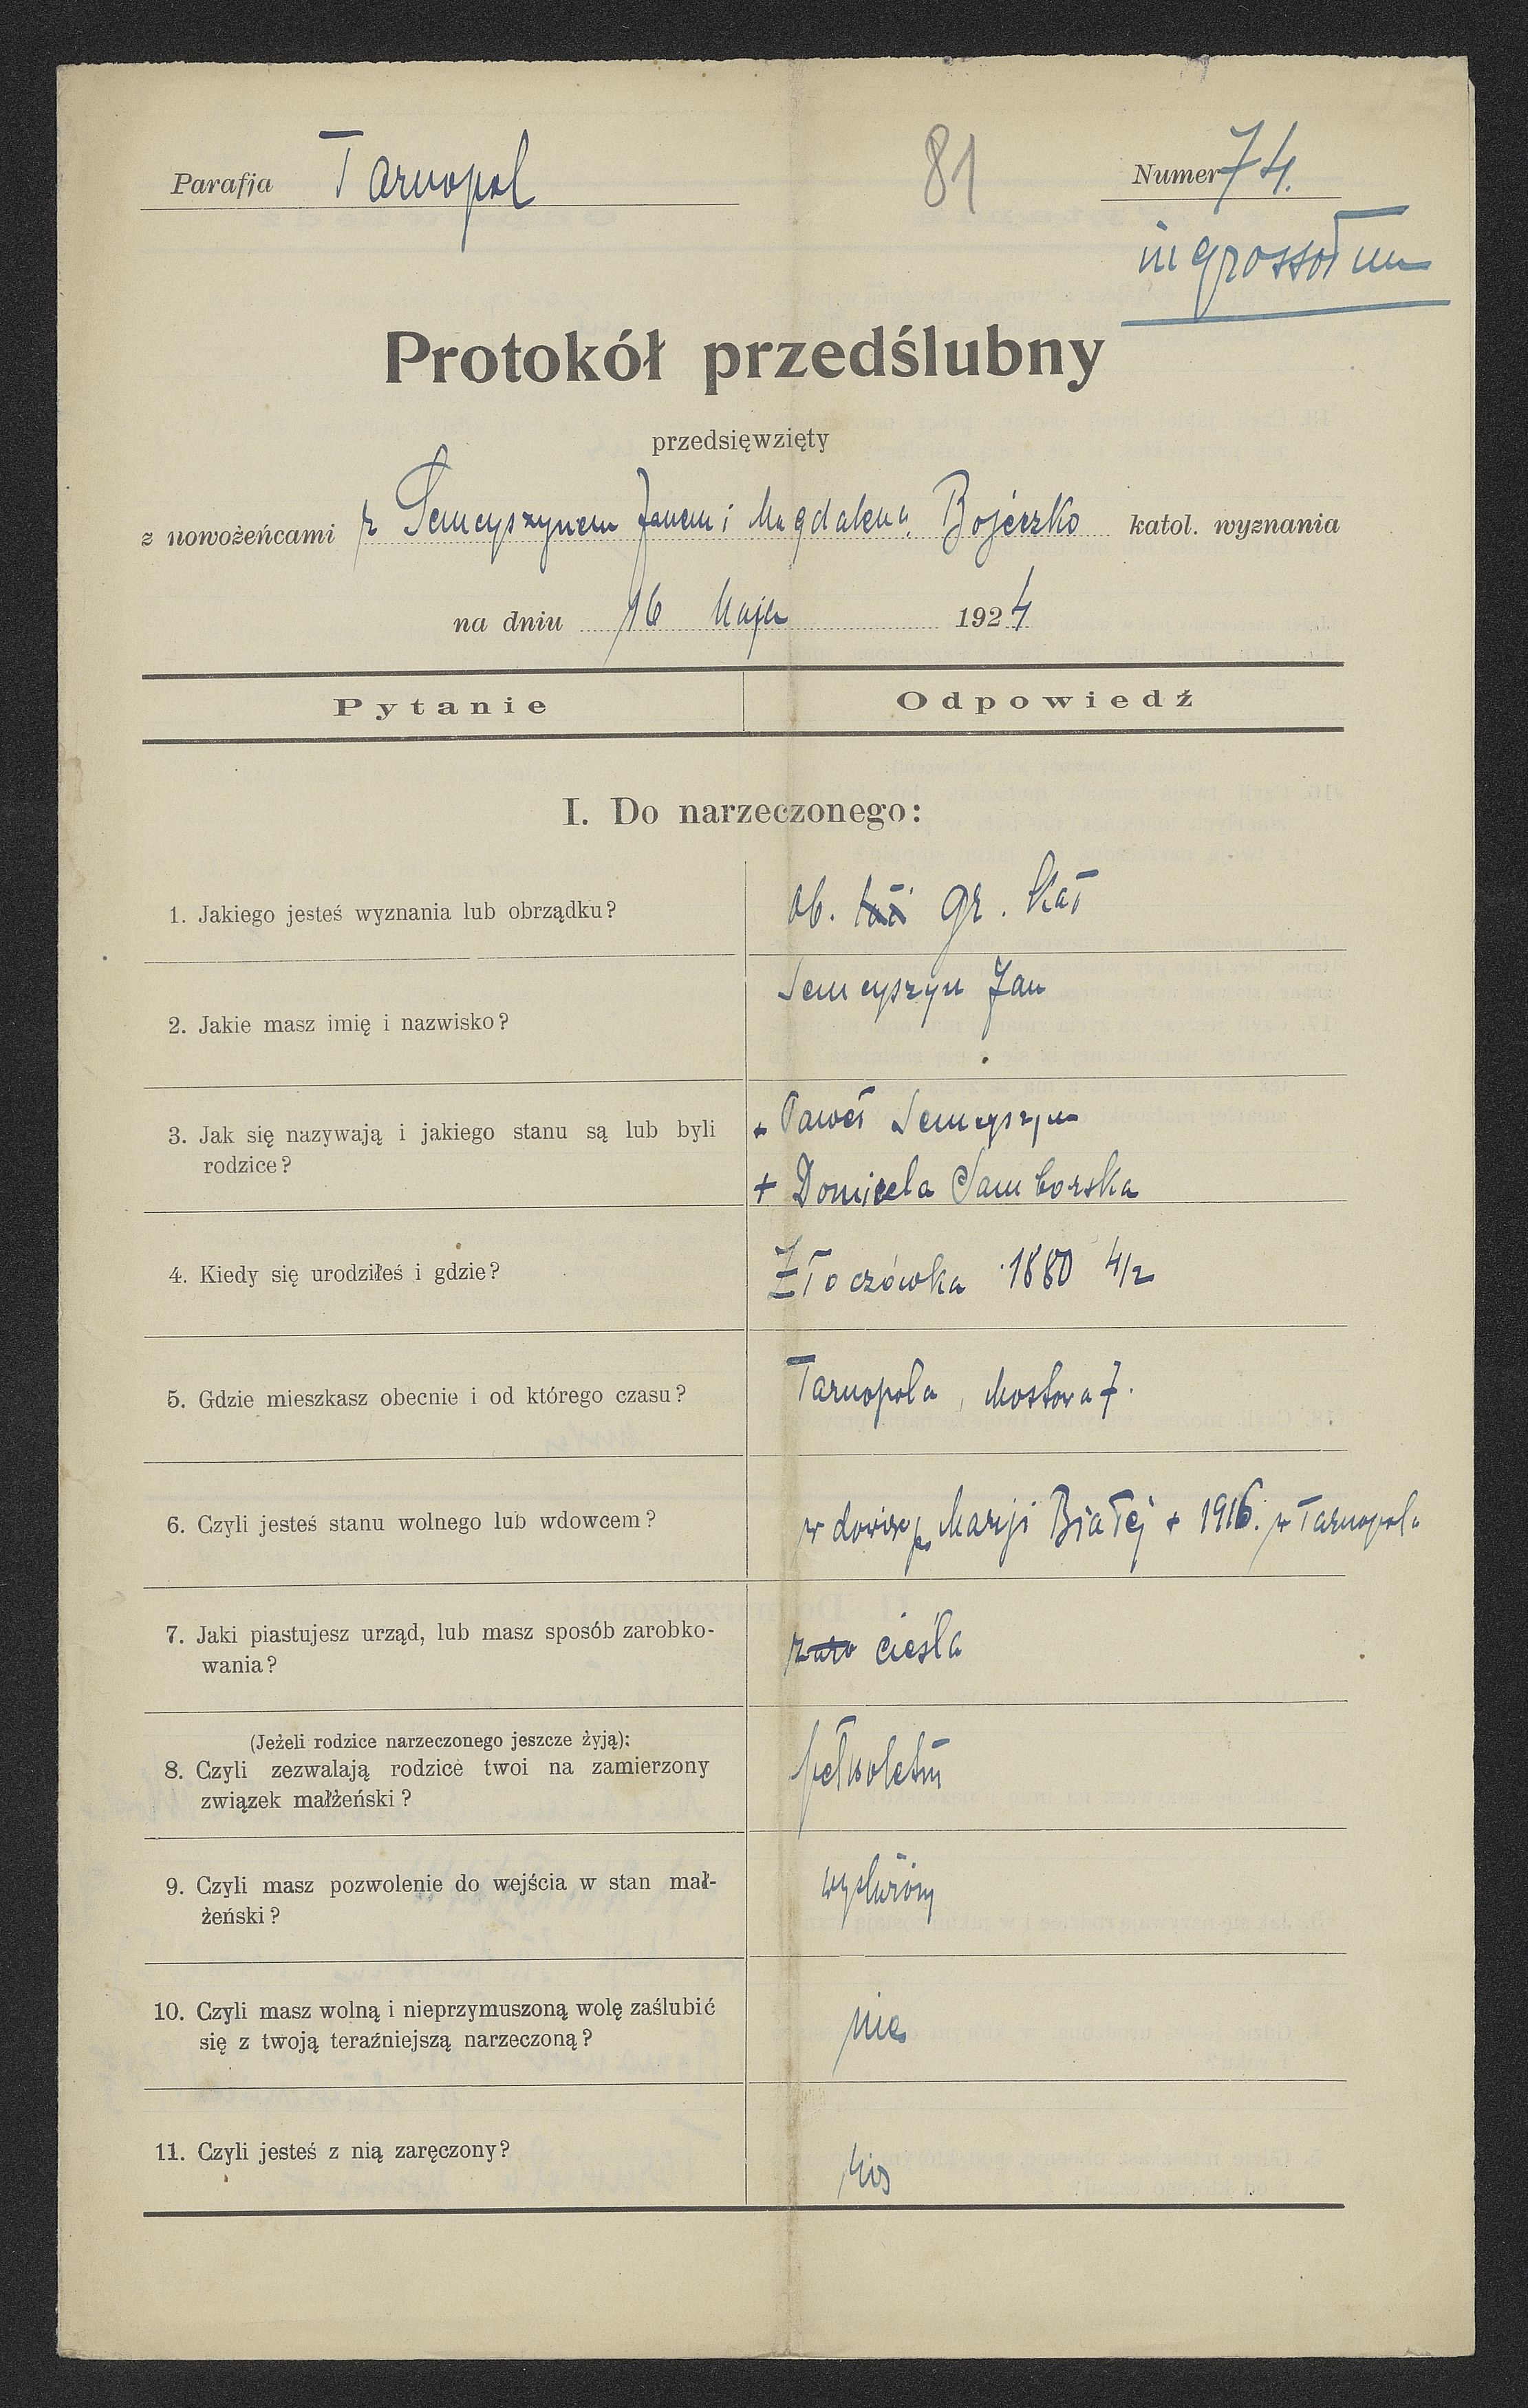 Parafja Tarnopol 81 Numer 74.
ingrossatum
Protokół przedślubny
przedsięwzięty
z nowożeńcami z Semcyszynem Janem i Magdaleną Bojeczko katol. wyznania
na dniu 16 Maja 1924
Pytanie Odpowiedź
I. Do narzeczonego:
1. Jakiego jesteś wyznania lub obrządku? ob. łać gr. kat
2. Jakie masz imię i nazwisko? Semcyszyn Jan
3. Jak się nazywają i jakiego stanu są lub byli rodzice? + Paweł Semcyszyn
+ Domicela Samborska
4. Kiedy się urodziłeś i gdzie? Złoczówka 1880 4/2
5. Gdzie mieszkasz obecnie i od którego czasu? Tarnopola, Mostowa 7.
6. Czyli jesteś stanu wolnego lub wdowcem? wdowiec po Marji Białej + 1916. w Tarnopolu
7. Jaki piastujesz urząd, lub masz sposób zarobko-
wania? cieśla
(Jeżeli rodzice narzeczonego jeszcze żyją):
8. Czyli zezwalają rodzice twoi na zamierzony
związek małżeński? pełnoletni
9. Czyli masz pozwolenie do wejścia w stan mał-
żeński? wysłużony
10. Czyli masz wolną i nieprzymuszoną wolę zaślubić
się z twoją teraźniejszą narzeczoną? nie
11. Czyli jesteś z nią zaręczony?